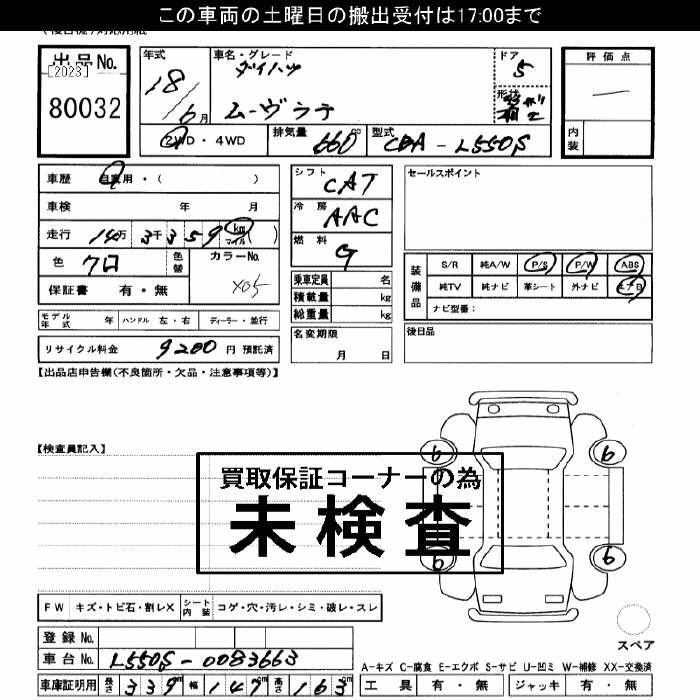 この車両の土曜日の搬出受付は17:00まで
出品No.
[2023]
80032
年式
18/6月
車名・グレード
ダイハツ
ムーヴラテ
ドア
5
形状
評価点
内装
2WD・4WD
排気量 660 cc
型式 CBA-L550S
車歴 自家用・( )
車検 年 月
走行 14万3千359 km マイル ( )
色 クロ 色替
カラーNo. X05
保証書 有・無
シフト CAT
冷房 AAC
燃料 G
乗車定員 名
積載量 kg
総重量 kg
セールスポイント
装備品
S/R 純A/W P/S P/W ABS
純TV 純ナビ 革シート 外ナビ エアB
ナビ型番:
モデル年式 年 ハンドル 左・右 ディーラー・並行
名変期限 月 日
後日品
リサイクル料金 9200 円 預託済
【出品店申告欄(不良箇所・欠品・注意事項等)】
【検査員記入】
買取保証コーナーの為
未検査
6
6
6
6
FW キズ・トビ石・割レX シート内装 コゲ・穴・汚レ・シミ・破レ・スレ
スペア
登録No.
車台No. L550S-0083663
A-キズ C-腐食 E-エクボ S-サビ U-凹ミ W-補修 XX-交換済
車庫証明用 長さ 339 cm 幅 147 cm 高さ 163 cm
工具 有・無 ジャッキ 有・無